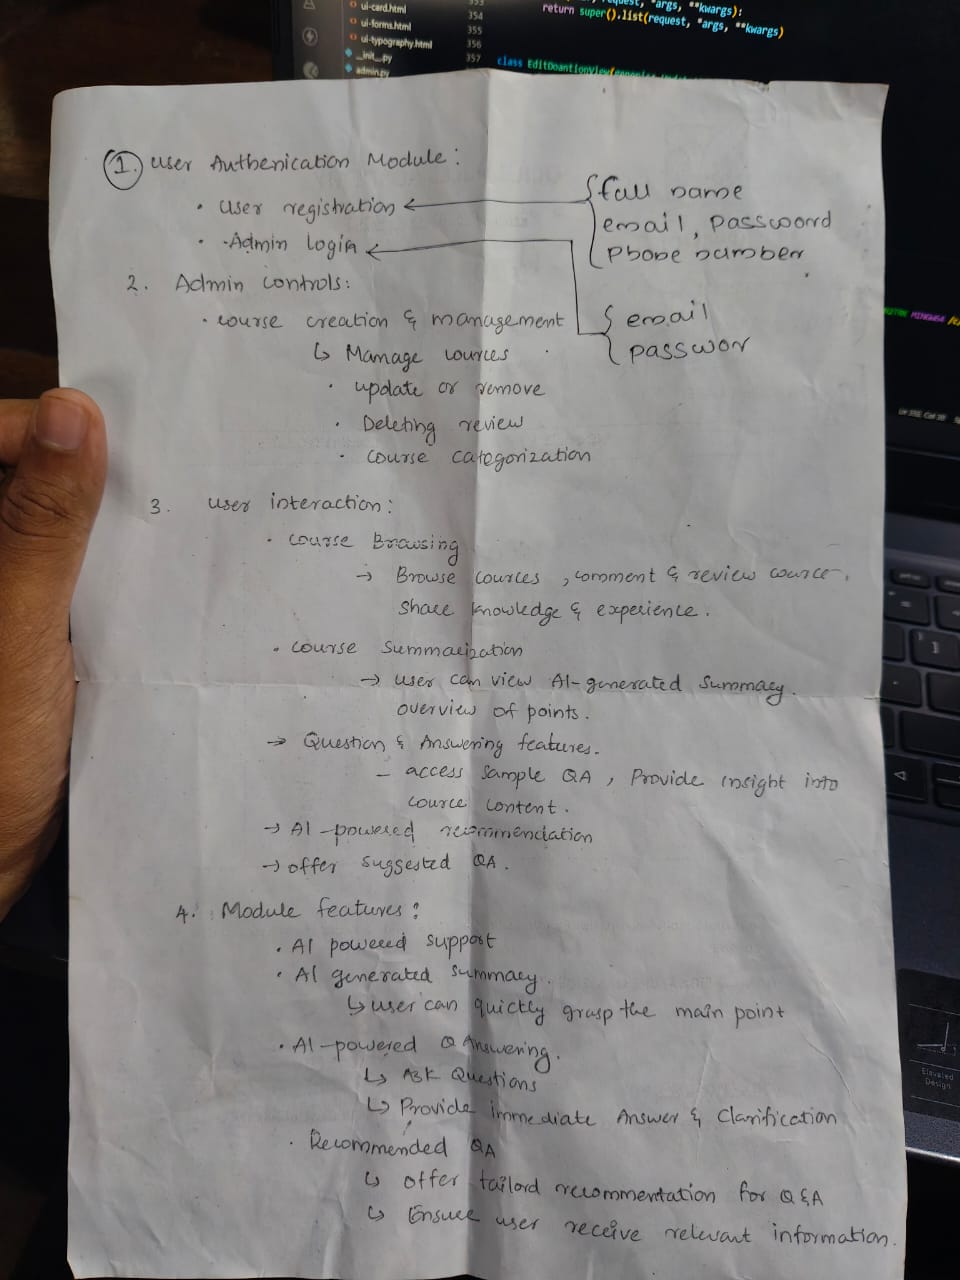 ui-card.html
ui-forms.html
ui-typography.html
__init__.py
admin.py
354
355
356
357
request, *args, **kwargs):
return super().list(request, *args, **kwargs)
class EditDoantionView(
1. User Authenication Module:
• User registration
{ full name
email, password
phone number
• -Admin login
{ email
passwor
2. Admin controls:
• course creation & management
↳ Manage cources
• update or remove
• Deleting review
• course categorization
3. User interaction:
• course Browsing
→ Browse cources, comment & review cource.
share knowledge & experience.
• course summarization
→ user can view AI-generated summary.
overview of points.
→ Question & Answering features.
- access sample QA, Provide insight into
cource content.
→ AI-powered recommendation
→ offer suggested QA.
4. Module features:
• AI powered support
• AI generated summary.
↳ user can quictly grasp the main point
• AI-powered Q Answering.
↳ Ask Questions
↳ Provide immediate Answer & Clarification
• Recommended QA
↳ offer tailord recommentation for Q&A
↳ Ensure user receive relevant information.
MINGW64
Elevated
Design